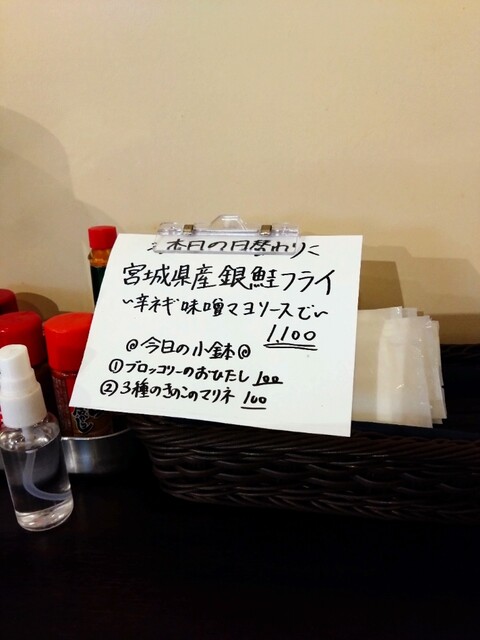 本日の日替わり
宮城県産銀鮭フライ
~辛ネギ味噌マヨソースで~
1,100
@今日の小鉢@
①ブロッコリーのおひたし 100
②3種のきのこのマリネ 100